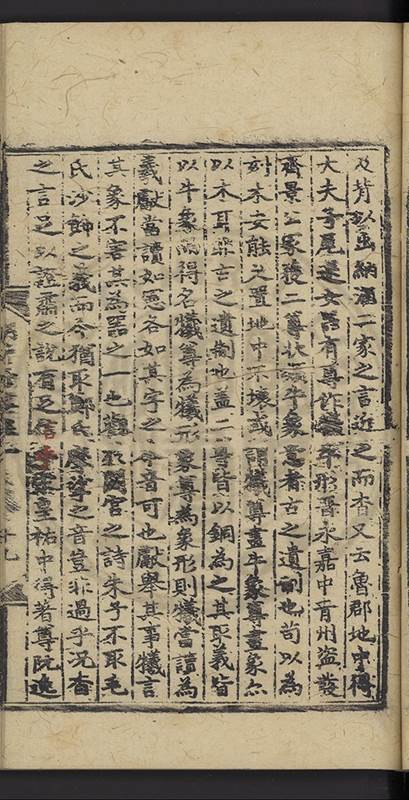 及背以盛納酒二家之言近之而杳又云魯郡地中得
大夫子尾送女器有尊作牛形晉永嘉中青州盜發
齊景公冢獲二尊狀牛象意者古之遺制也苟以為
刻木安能久置地中不壞或謂犧尊畫牛象尊畫象
以木耳非古之遺制也蓋二尊皆以銅為之其取義皆
以牛象而得名犧尊為犧形象尊為象形則犧當讀為
羲獻當讀如憲各如其字之本音可也獻舉其事犧言
其象不害其為器之一也觀於閟官之詩朱子不取毛
氏沙飾之義而今猶取鄭氏摩挲之音豈非過乎況杳
之言足以證肅之說有足信者宋皇祐中得著尊阮逸